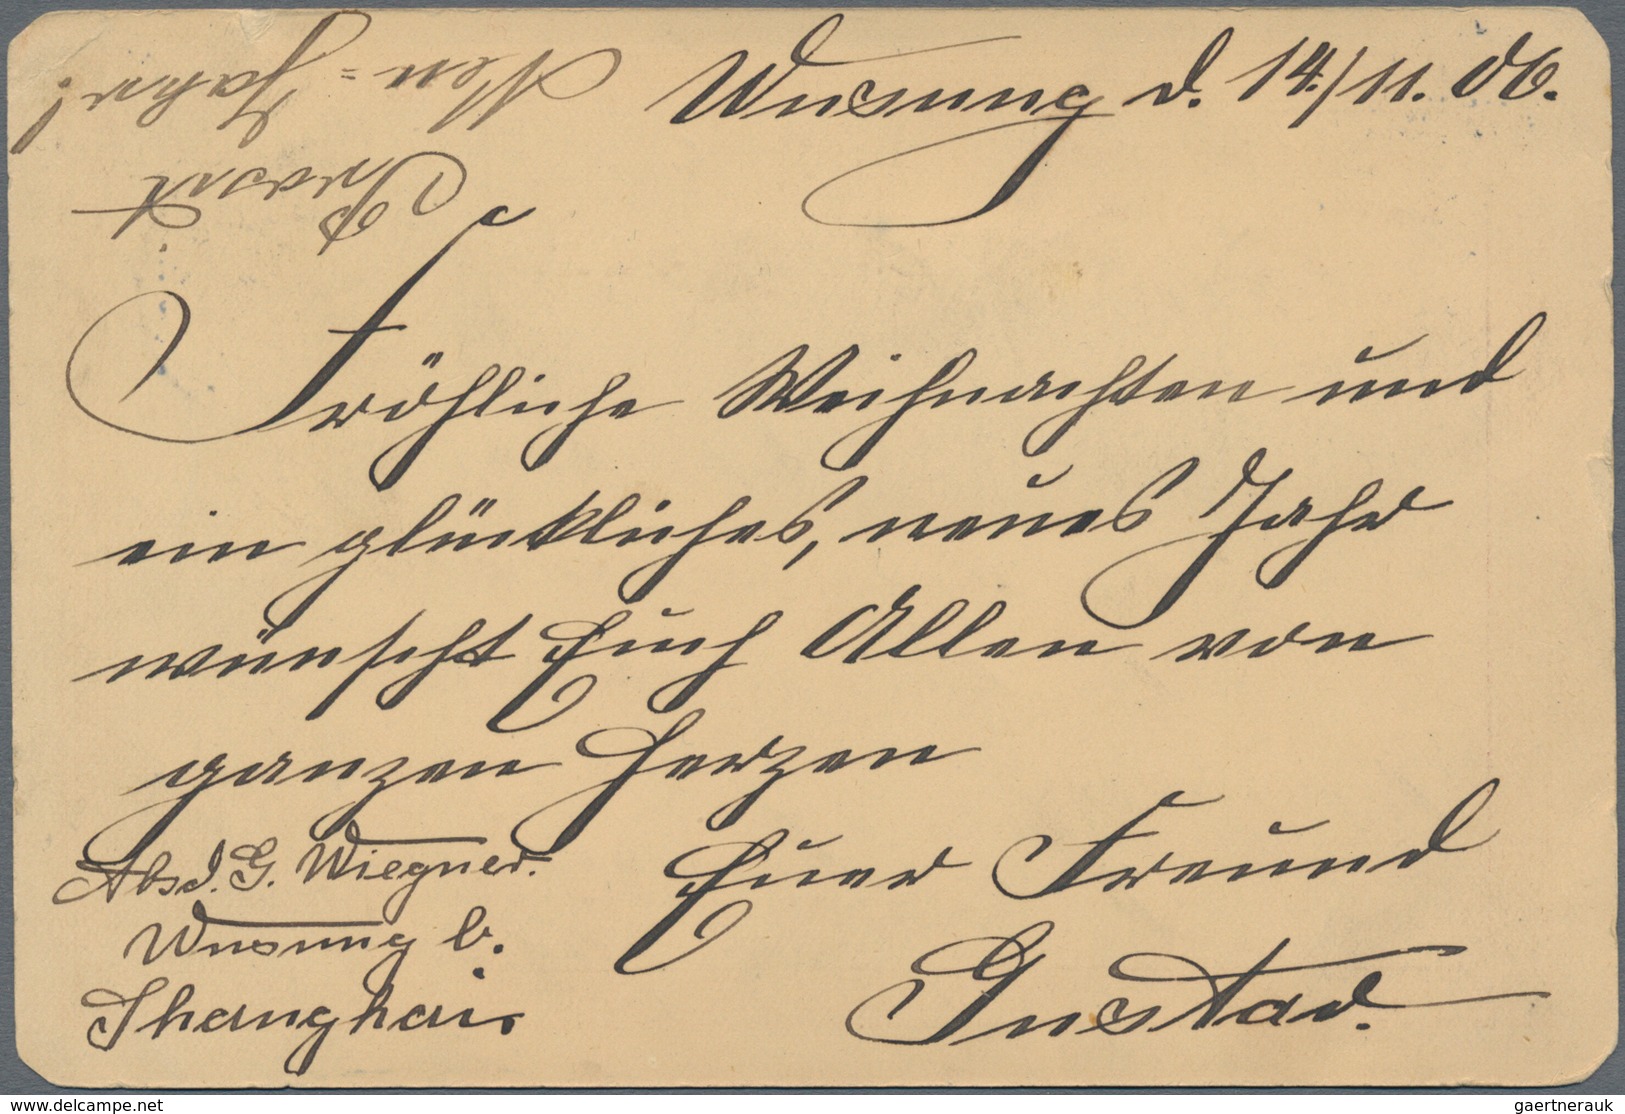 Wusung d. 14./11. 06.
Prosit
Neu=Jahr!
Fröhliche Weihnachten und
ein glückliches, neues Jahr
wünscht Euch Allen von
ganzen Herzen
Euer Freund
Gustav.
Absd. G. Wiegner.
Wusung b.
Shanghai.
delcampe.net
gaertnerauk